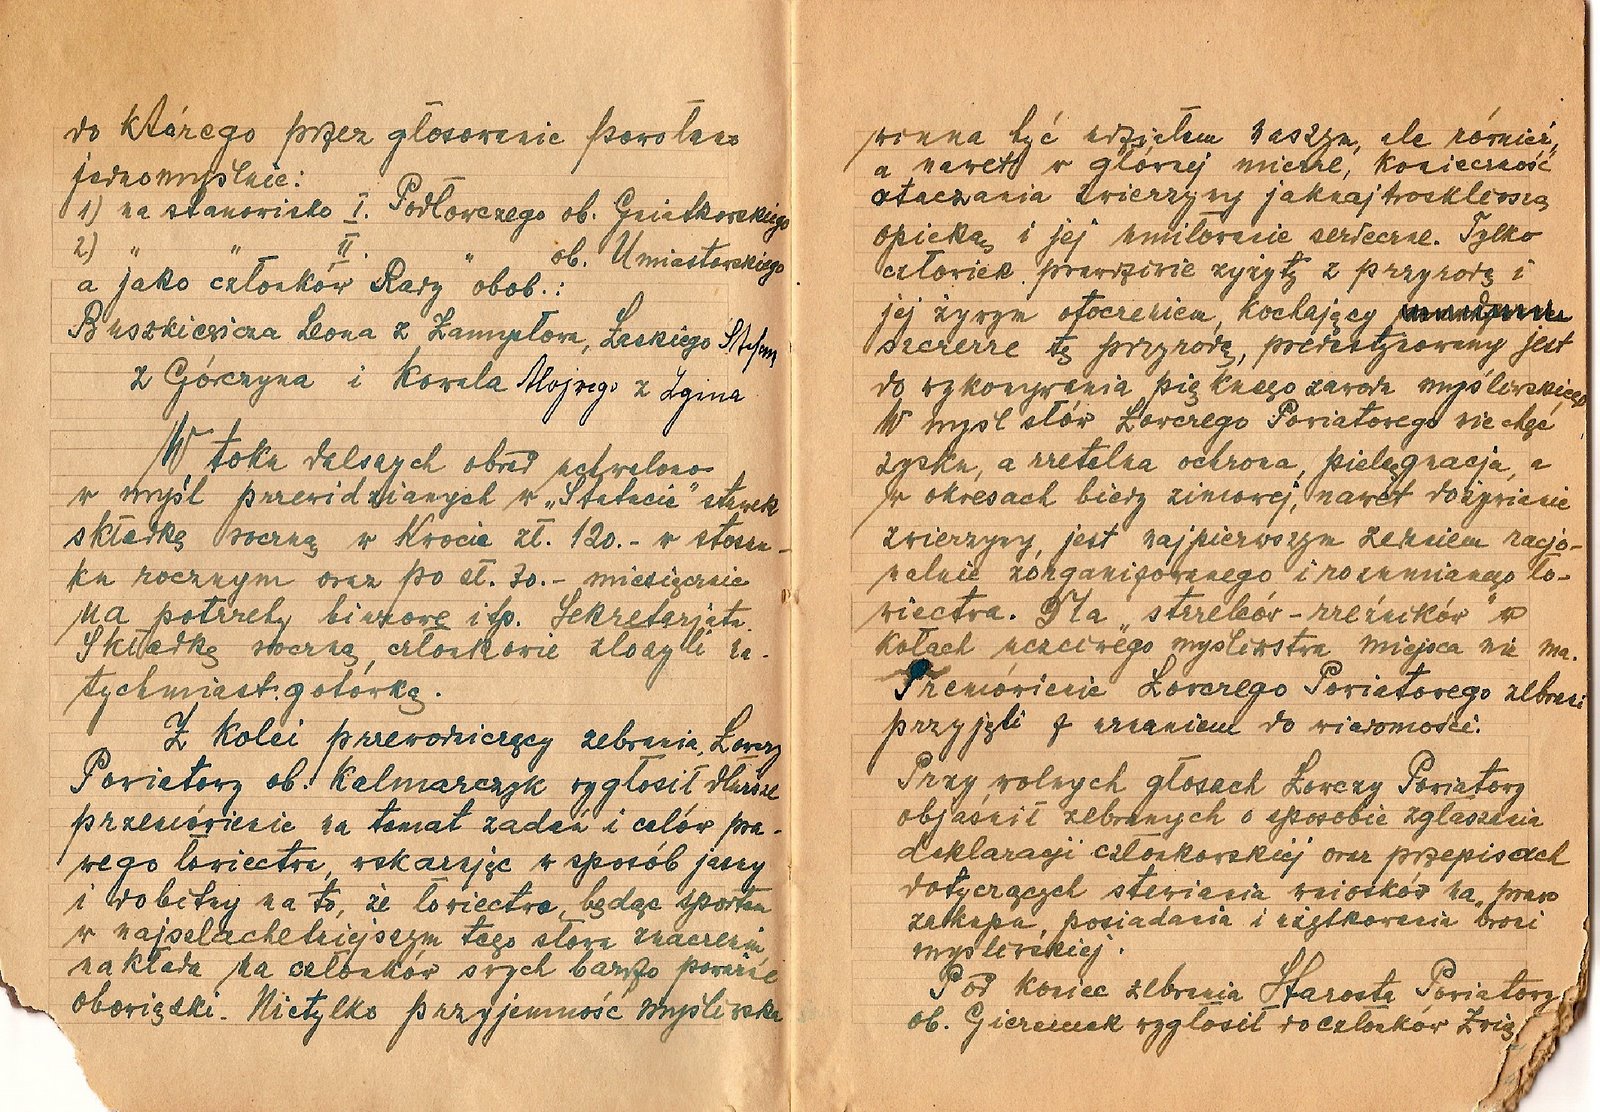 do którego przez głosowanie powołano
jednomyślnie:
1) na stanowisko I. Podłowczego ob. Gniatkowskiego
2) " " II. " ob. Umiastowskiego
a jako członków Rady obob.:
Buszkiewicza Leona z Zamysłowa, Łaskiego Stefana
z Górczyna i Kowala Alojzego z Zgina
W toku dalszych obrad uchwalono
w myśl przewidzianych w „Statucie" stawek
składkę roczną w kwocie zł. 120.- w stosun-
ku rocznym oraz po zł. 30.- miesięcznie
na potrzeby biurowe itp. Sekretarjatu.
Składkę roczną członkowie złożyli na-
tychmiast gotówką.
Z kolei przewodniczący zebrania, Łowczy
Powiatowy ob. Kalmarczyk wygłosił dłuższe
przemówienie na temat zadań i celów pra-
wego łowiectwa, wskazując w sposób jasny
i dobitny na to, że łowiectwo, będąc sportem
w najszlachetniejszym tego słowa znaczeniu
nakłada na członków swych bardzo poważne
obowiązki. Nietylko przyjemność myśliwska
winna być udziałem naszym, ale również,
a nawet w głównej mierze, konieczność
otaczania zwierzyny jaknajtroskliwszą
opieką i jej umiłowanie serdeczne. Tylko
człowiek prawdziwie zżyty z przyrodą i
jej żywym otoczeniem, kochający
szczerze tę przyrodę, predestynowany jest
do wykonywania pięknego zawodu myśliwskiego
W myśl słów Łowczego Powiatowego nie chęć
zysku, a rzetelna ochrona, pielęgnacja, a
w okresach biedy zimowej, nawet dożywianie
zwierzyny, jest najpierwszym zadaniem racjo-
nalnie zorganizowanego i rozumianego ło-
wiectwa. Dla „strzelców-rzeźników" w
kołach uczciwego myślistwa miejsca nie ma.
Przemówienie Łowczego Powiatowego zebrani
przyjęli z uznaniem do wiadomości.
Przy wolnych głosach Łowczy Powiatowy
objaśnił zebranych o sposobie zgłaszania
deklaracji członkowskiej oraz przepisach
dotyczących stawiania wniosków na prawo
zakupu, posiadania i użytkowania broni
myśliwskiej.
Pod koniec zebrania Starosta Powiatowy
ob. Gieremek wygłosił do członków Zwią